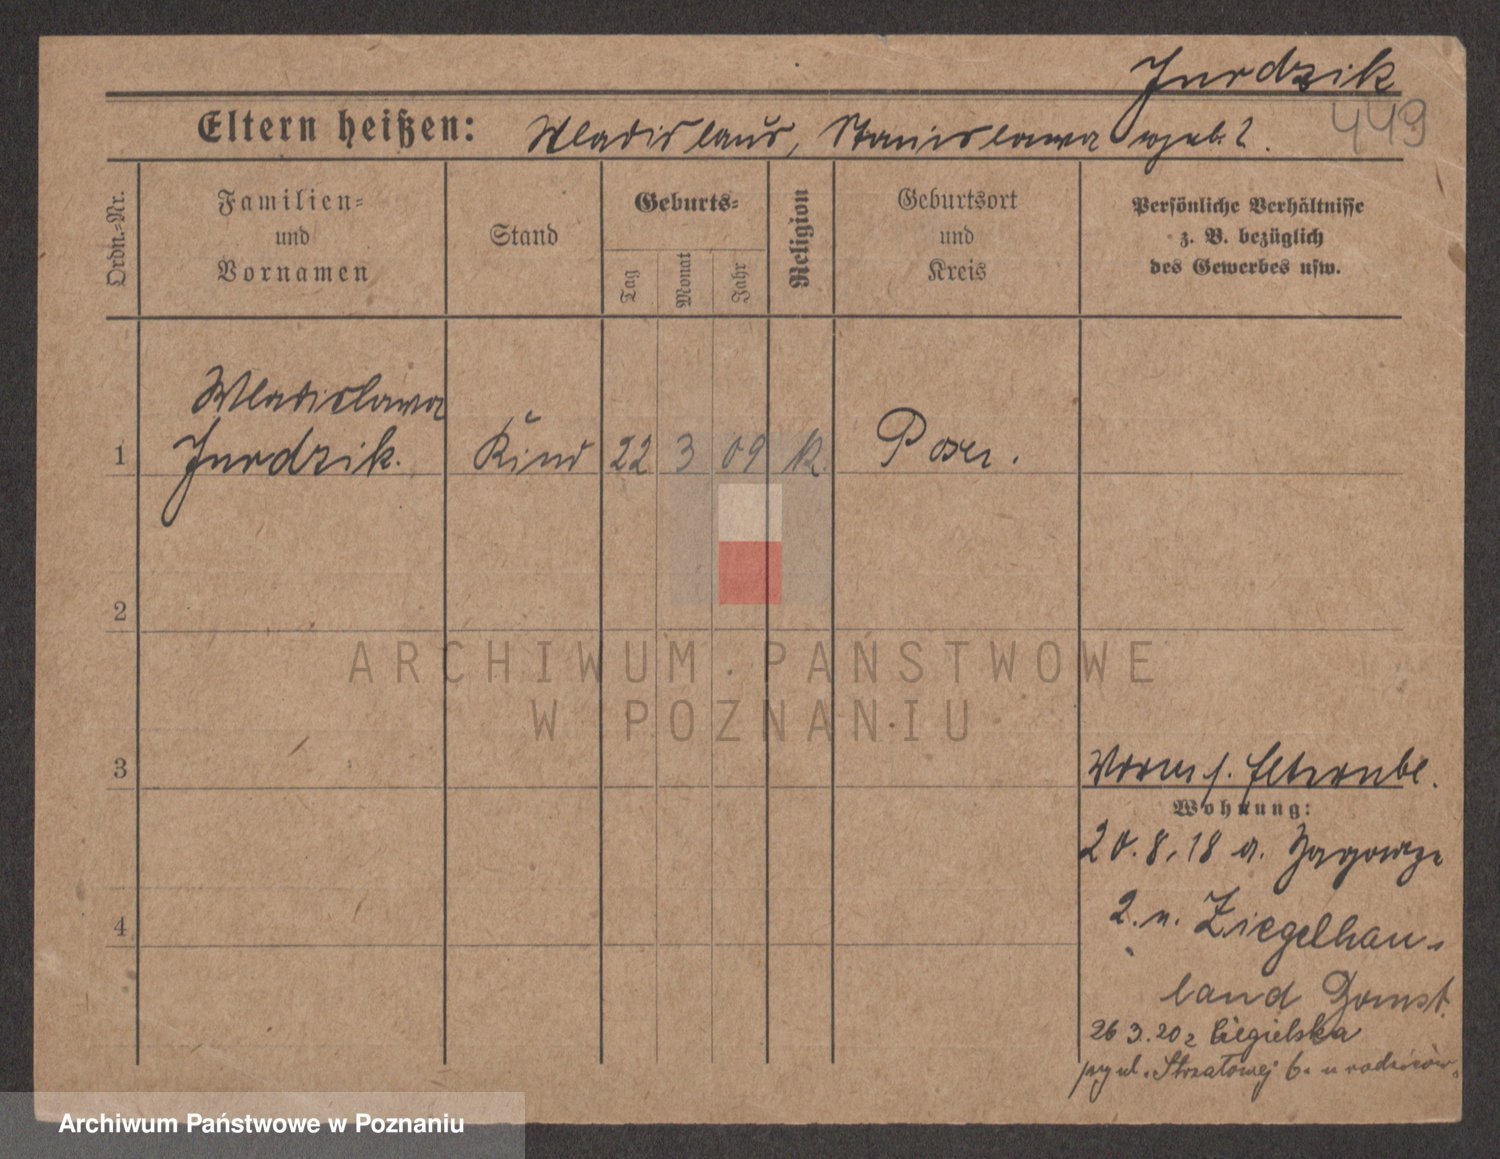 Jurdzik
449
Eltern heißen: Wladislaus, Stanislawa geb. ?.
Ordn.-Nr.
Familien-
und
Vornamen
Stand
Geburts-
Tag
Monat
Jahr
Religion
Geburtsort
und
Kreis
Persönliche Verhältnisse
z. B. bezüglich
des Gewerbes usw.
Wladislawa
1 Jurdzik. Kind 22 3 09 K. Posen.
2
3
s. Elternbl.
Wohnung:
20.8.18 a.
2. n. Ziegelhau-
land Bomst.
26 3.20 z Cegielska
ul. Strzałowej 6. u rodziców.
4
ARCHIWUM PAŃSTWOWE
W POZNANIU
Archiwum Państwowe w Poznaniu